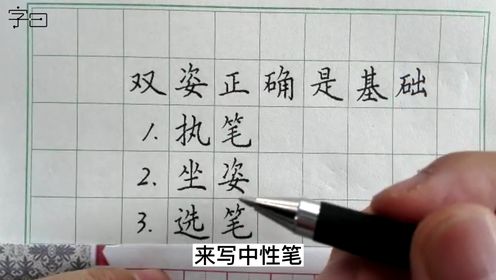 字曰
双姿正确是基础
1. 执笔
2. 坐姿
3. 选笔
来写中性笔